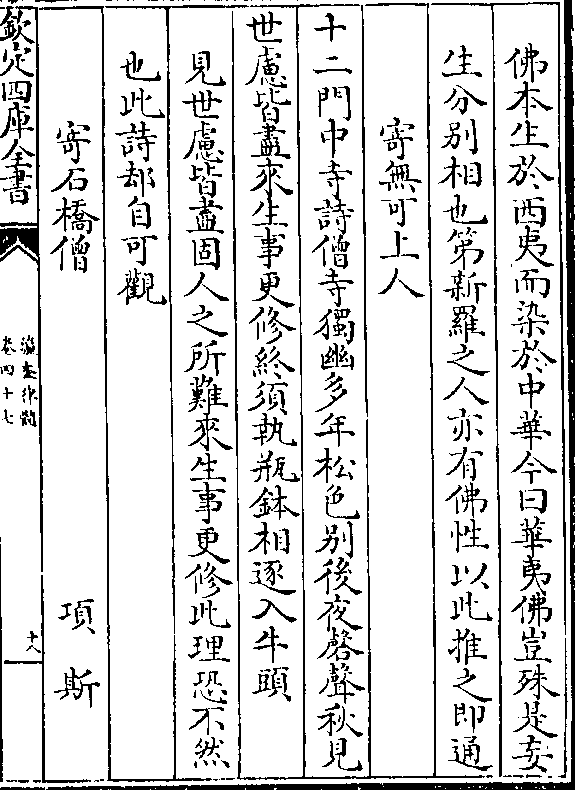 佛本生於西夷而染於中華今曰華夷佛豈殊是妄
生分别相也第新羅之人亦有佛性以此推之即通
寄無可上人
十二門中寺詩僧寺獨幽多年松色别後夜磬聲秋見
世慮皆盡來生事更修終須執瓶鉢相逐入牛頭
見世慮皆盡固人之所難來生事更修此理恐不然
也此詩却自可觀
寄石橋僧 項斯
欽定四庫全書
瀛奎律髓
卷四十七
十八